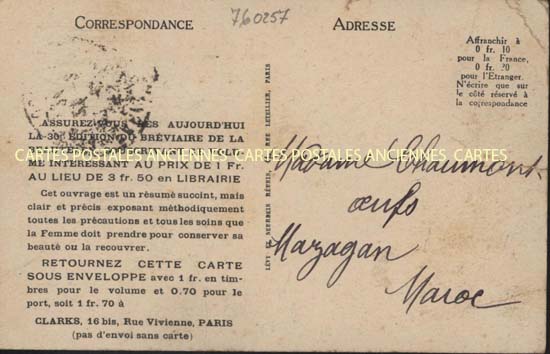 CORRESPONDANCE
760257
ADRESSE
Affranchir à
0 fr. 10
pour la France,
0 fr. 20
pour l'Etranger.
N'écrire que sur
le côté réservé à
la correspondance
ASSUREZ-VOUS DÈS AUJOURD'HUI
LA 30e ÉDITION DU BRÉVIAIRE DE LA
CARTES POSTALES ANCIENNES CARTES POSTALES ANCIENNES CARTES
ME INTÉRESSANT AU PRIX DE 1 Fr.
AU LIEU DE 3 fr. 50 en LIBRAIRIE
Cet ouvrage est un résumé succint, mais
clair et précis exposant méthodiquement
toutes les précautions et tous les soins que
la Femme doit prendre pour conserver sa
beauté ou la recouvrer.
RETOURNEZ CETTE CARTE
SOUS ENVELOPPE avec 1 fr. en tim-
bres pour le volume et 0.70 pour le
port, soit 1 fr. 70 à
CLARKS, 16 bis, Rue Vivienne, PARIS
(pas d'envoi sans carte)
LÉVY ET NEURDEIN RÉUNIS, LETELLIER, PARIS
Madame Chaumont
œufs
Mazagan
Maroc